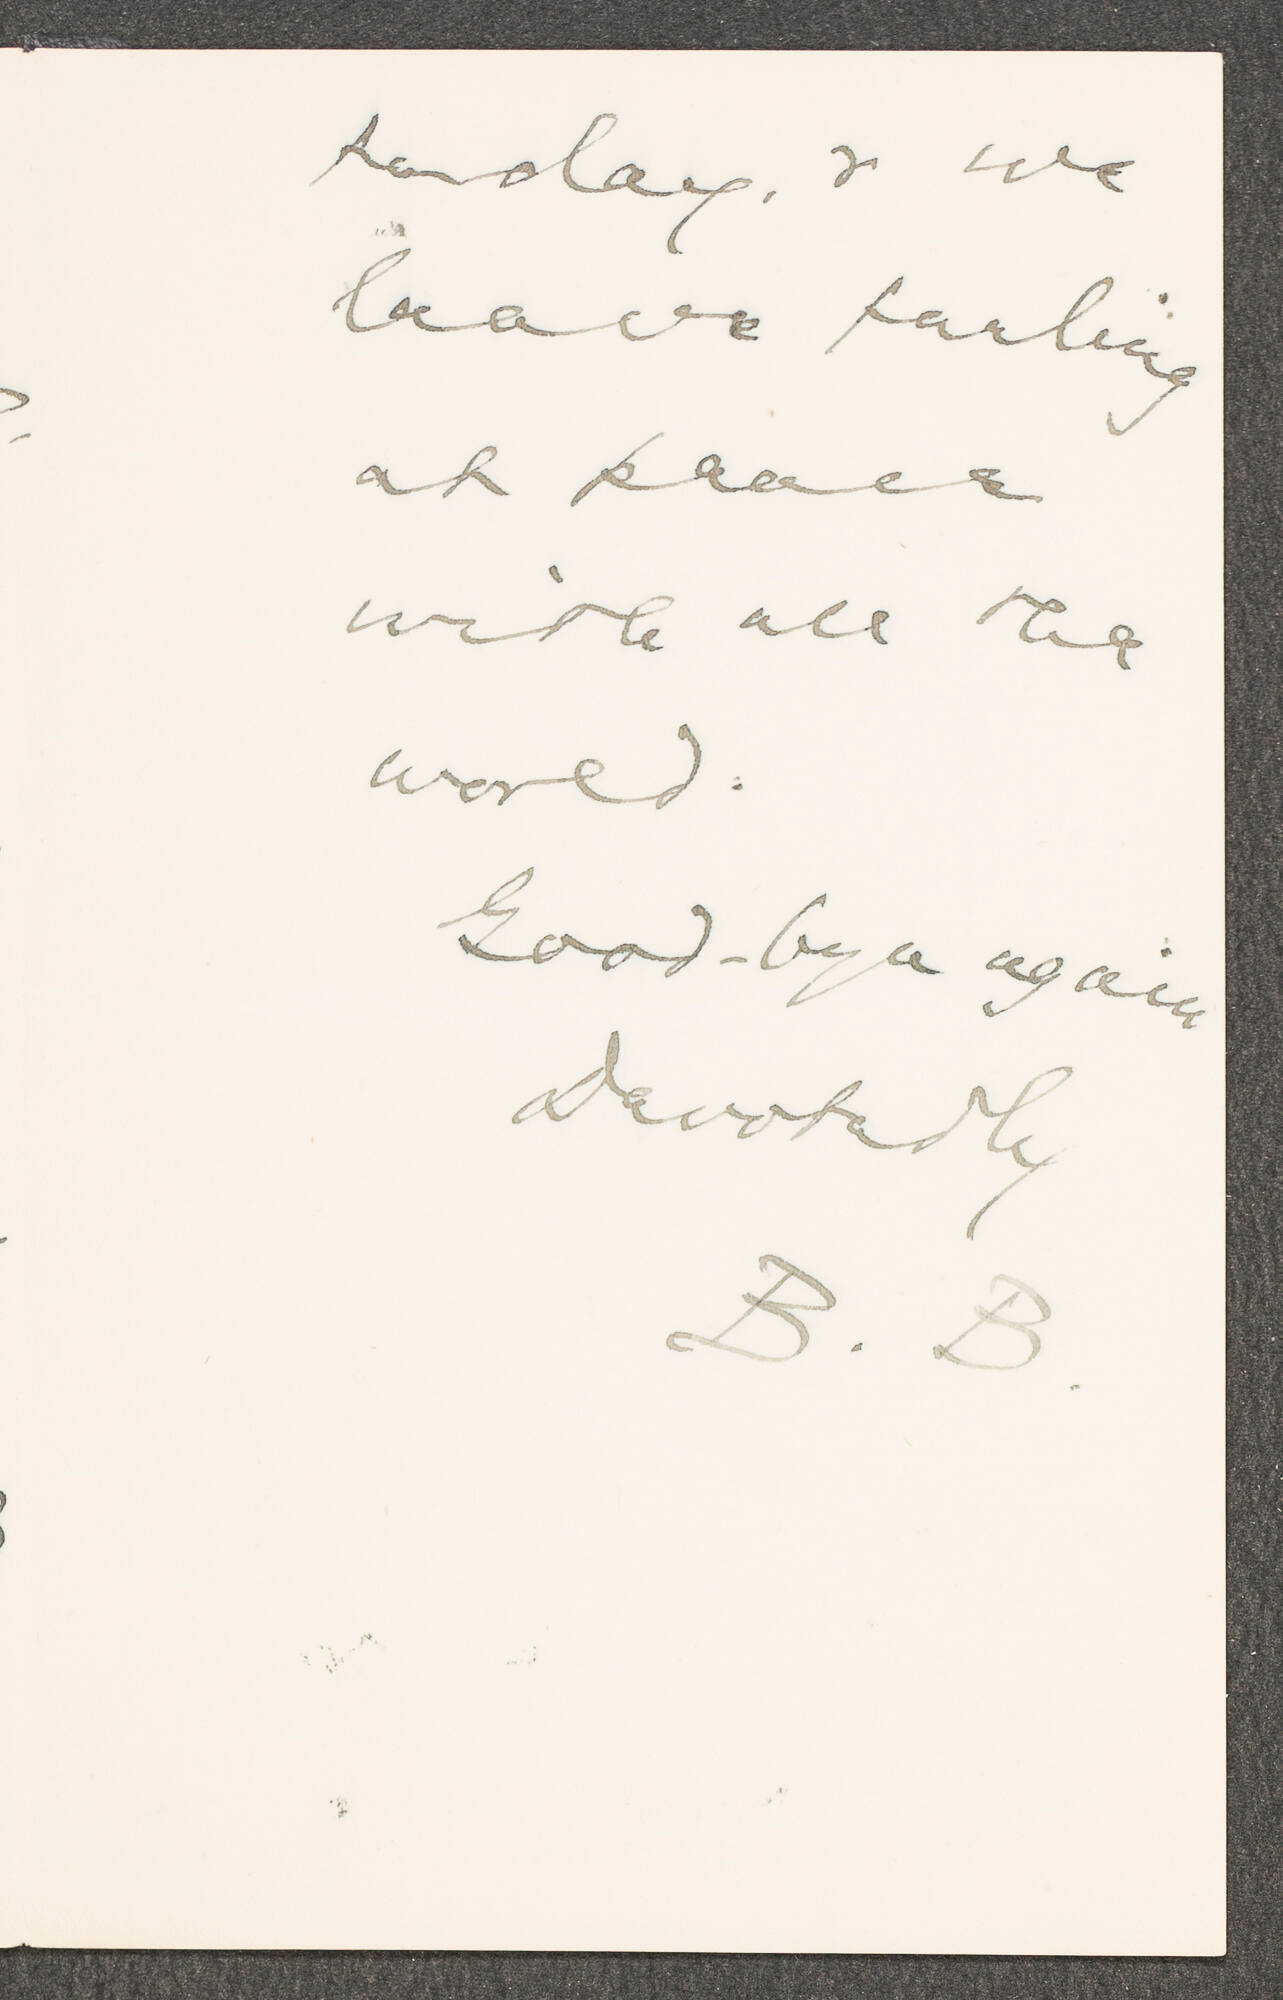 terday, & we
leave feeling
at peace
with all the
world.
Good-bye again
Devotedly
B. B.